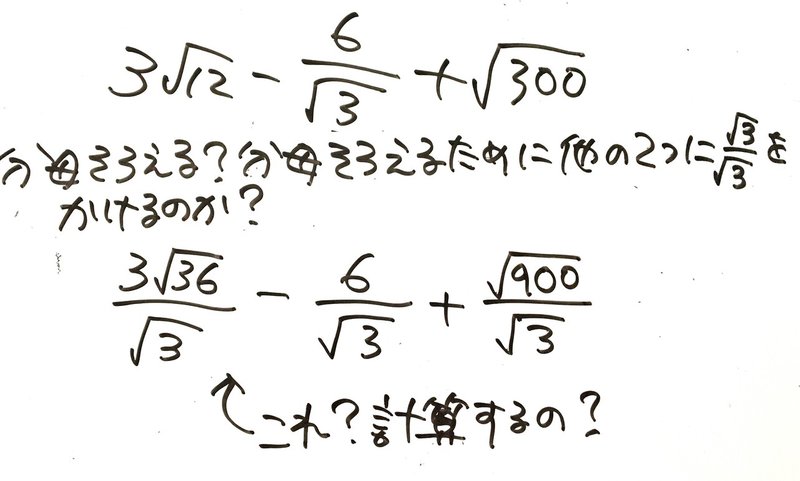 3√12 − 6/√3 + √300
分母そろえる?分母そろえるために他の2つに√3/√3を
かけるのか?
3√36/√3 − 6/√3 + √900/√3
これ?計算するの?